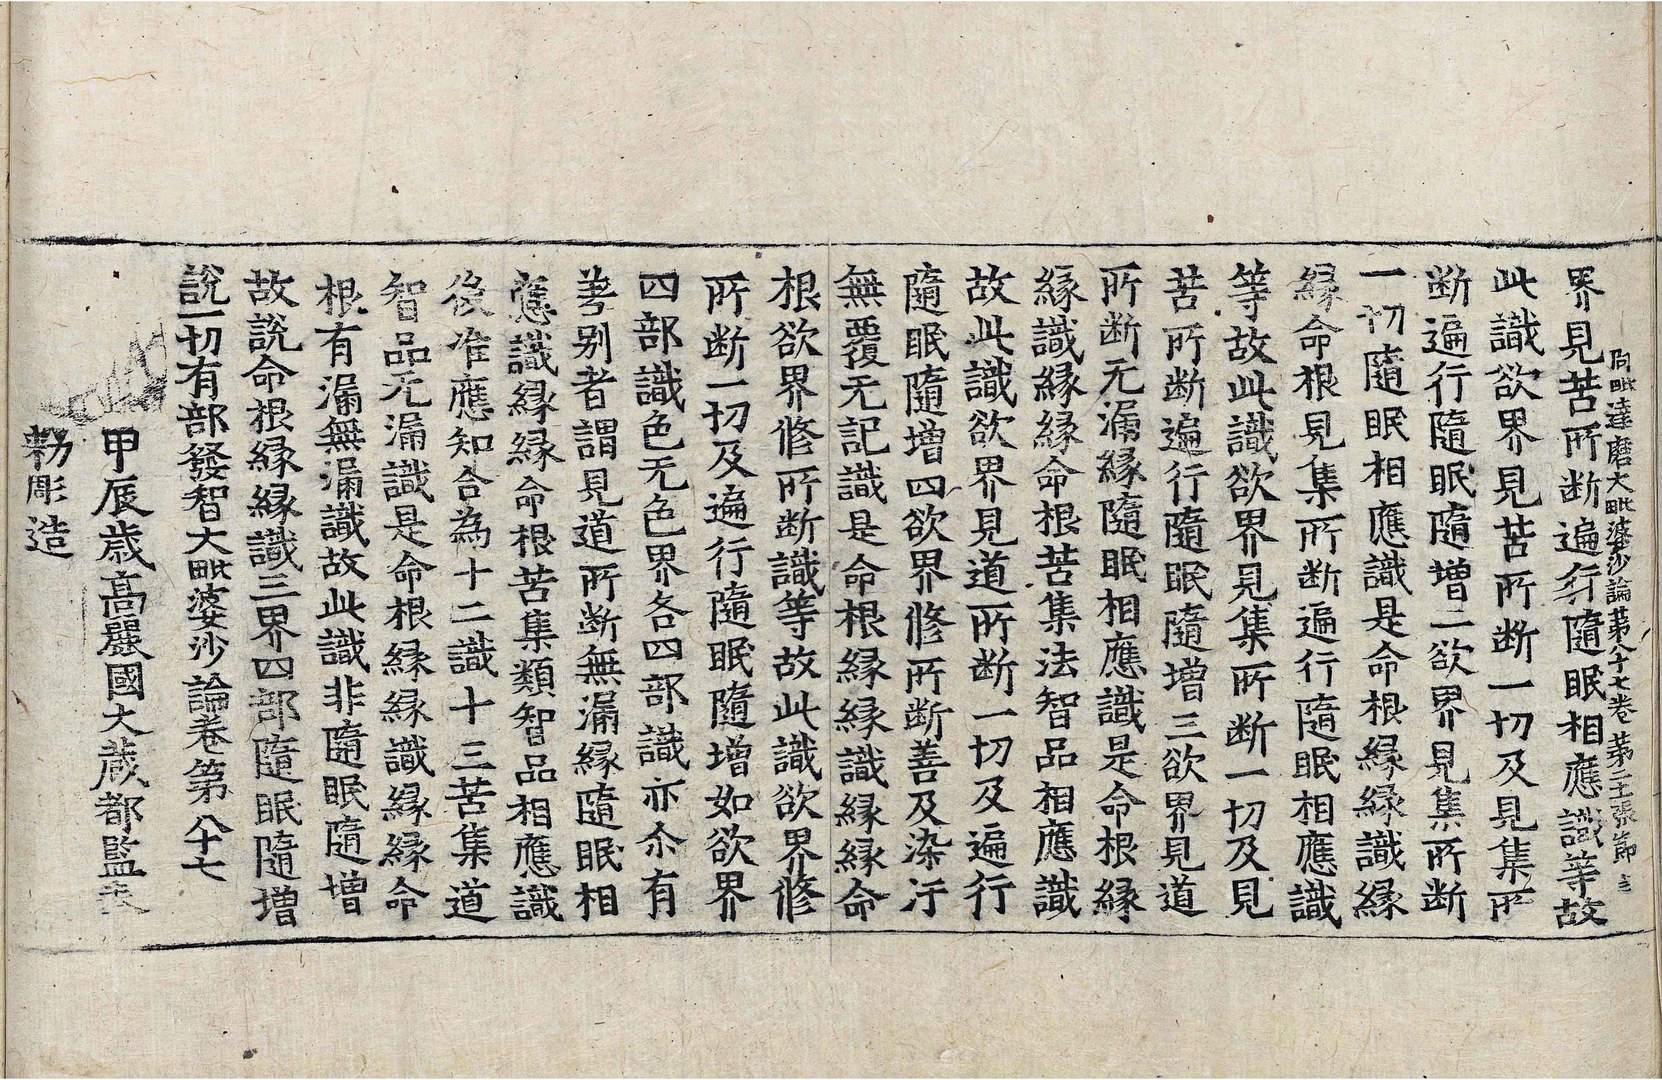 阿毗達磨大毗婆沙論苐八十七卷 苐二十張 節
界見苦所断遍行隨眠相應識等故
此識欲界見苦所断一切及見集所
断遍行隨眠隨增二欲界見集所断
一切隨眠相應識是命根縁縁識縁
縁命根見集所断遍行隨眠相應識
等故此識欲界見集所断一切及見
苦所断遍行隨眠隨增三欲界見道
所断无漏縁隨眠相應識是命根縁
縁識縁縁命根苦集法智品相應識
故此識欲界見道所断一切及遍行
隨眠隨增四欲界修所断善及染汙
無覆无記識是命根縁縁識縁縁命
根欲界修所断識等故此識欲界修
所断一切及遍行隨眠隨增如欲界
四部識色无色界各四部識亦尒有
差别者謂見道所断無漏縁隨眠相
應識縁縁命根苦集類智品相應識
後准應知合為十二識十三苦集道
智品无漏識是命根縁縁識縁縁命
根有漏無漏識故此識非隨眠隨增
故說命根縁縁識三界四部隨眠隨增
說一切有部發智大毗婆沙論卷第八十七
甲辰歳高麗國大蔵都監奉
勑彫造